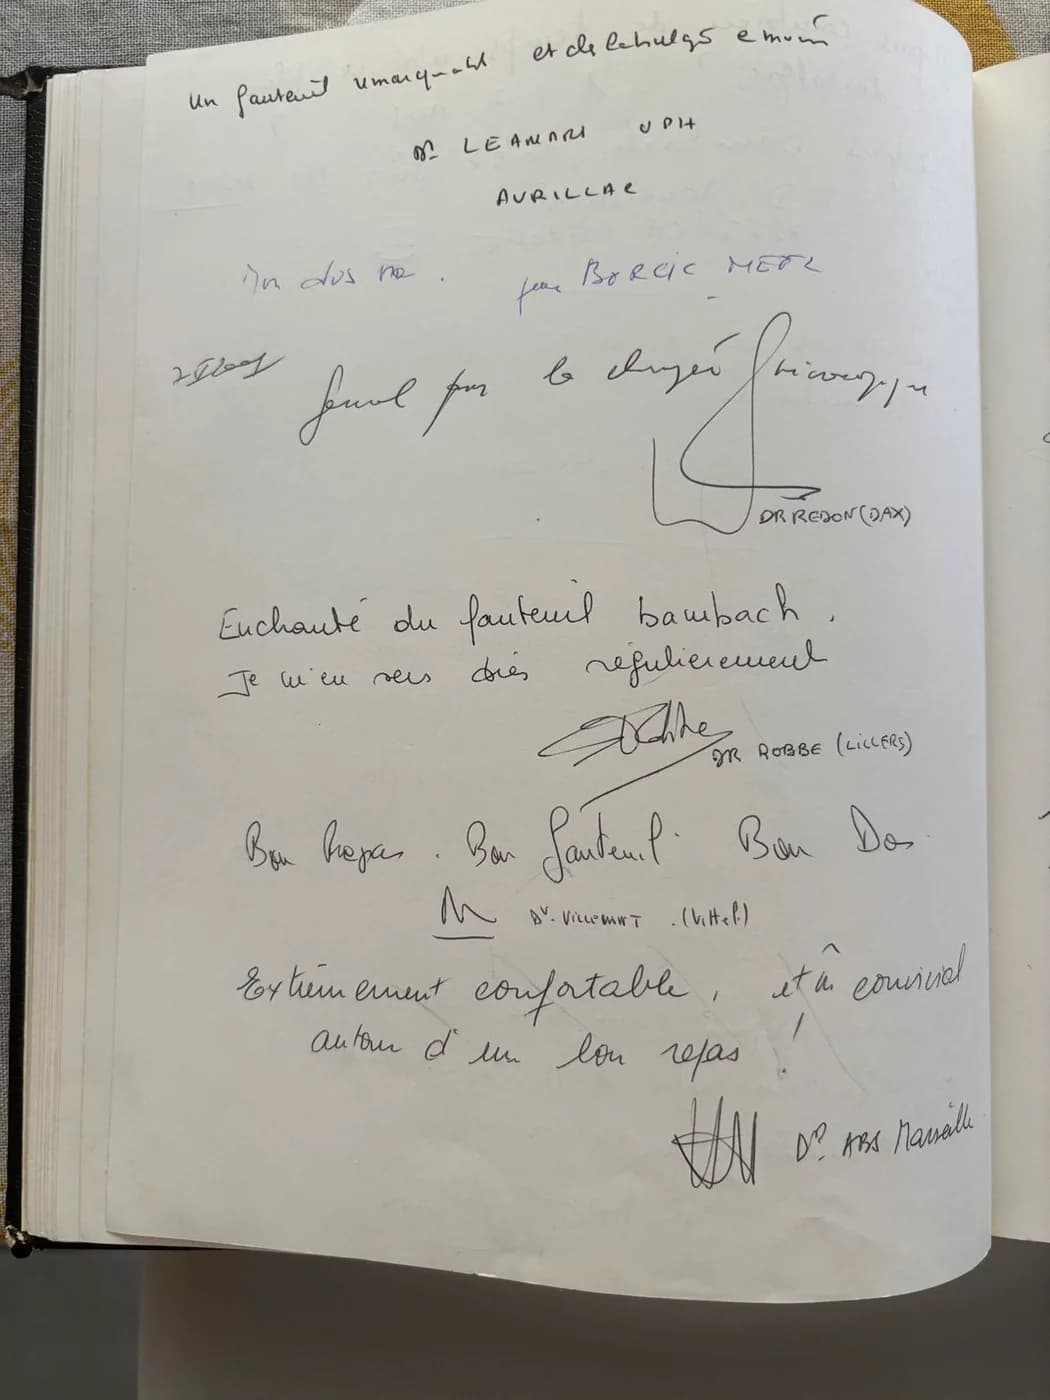 Un fauteuil remarquable et de
Dr LEAMARI UPH
AURILLAC
Mon dos
BORCIC METZ
Génial pour la
DR REDON (DAX)
Enchanté du fauteuil bambach.
Je m'en sers très régulièrement
DR ROBBE (LILLERS)
Bon Repas. Bon fauteuil. Bon Dos
Dr. VILLEMOT. (Vittel.)
Extrêmement confortable, et convivial
autour d'un bon repas !
Dr. ABS Marseille